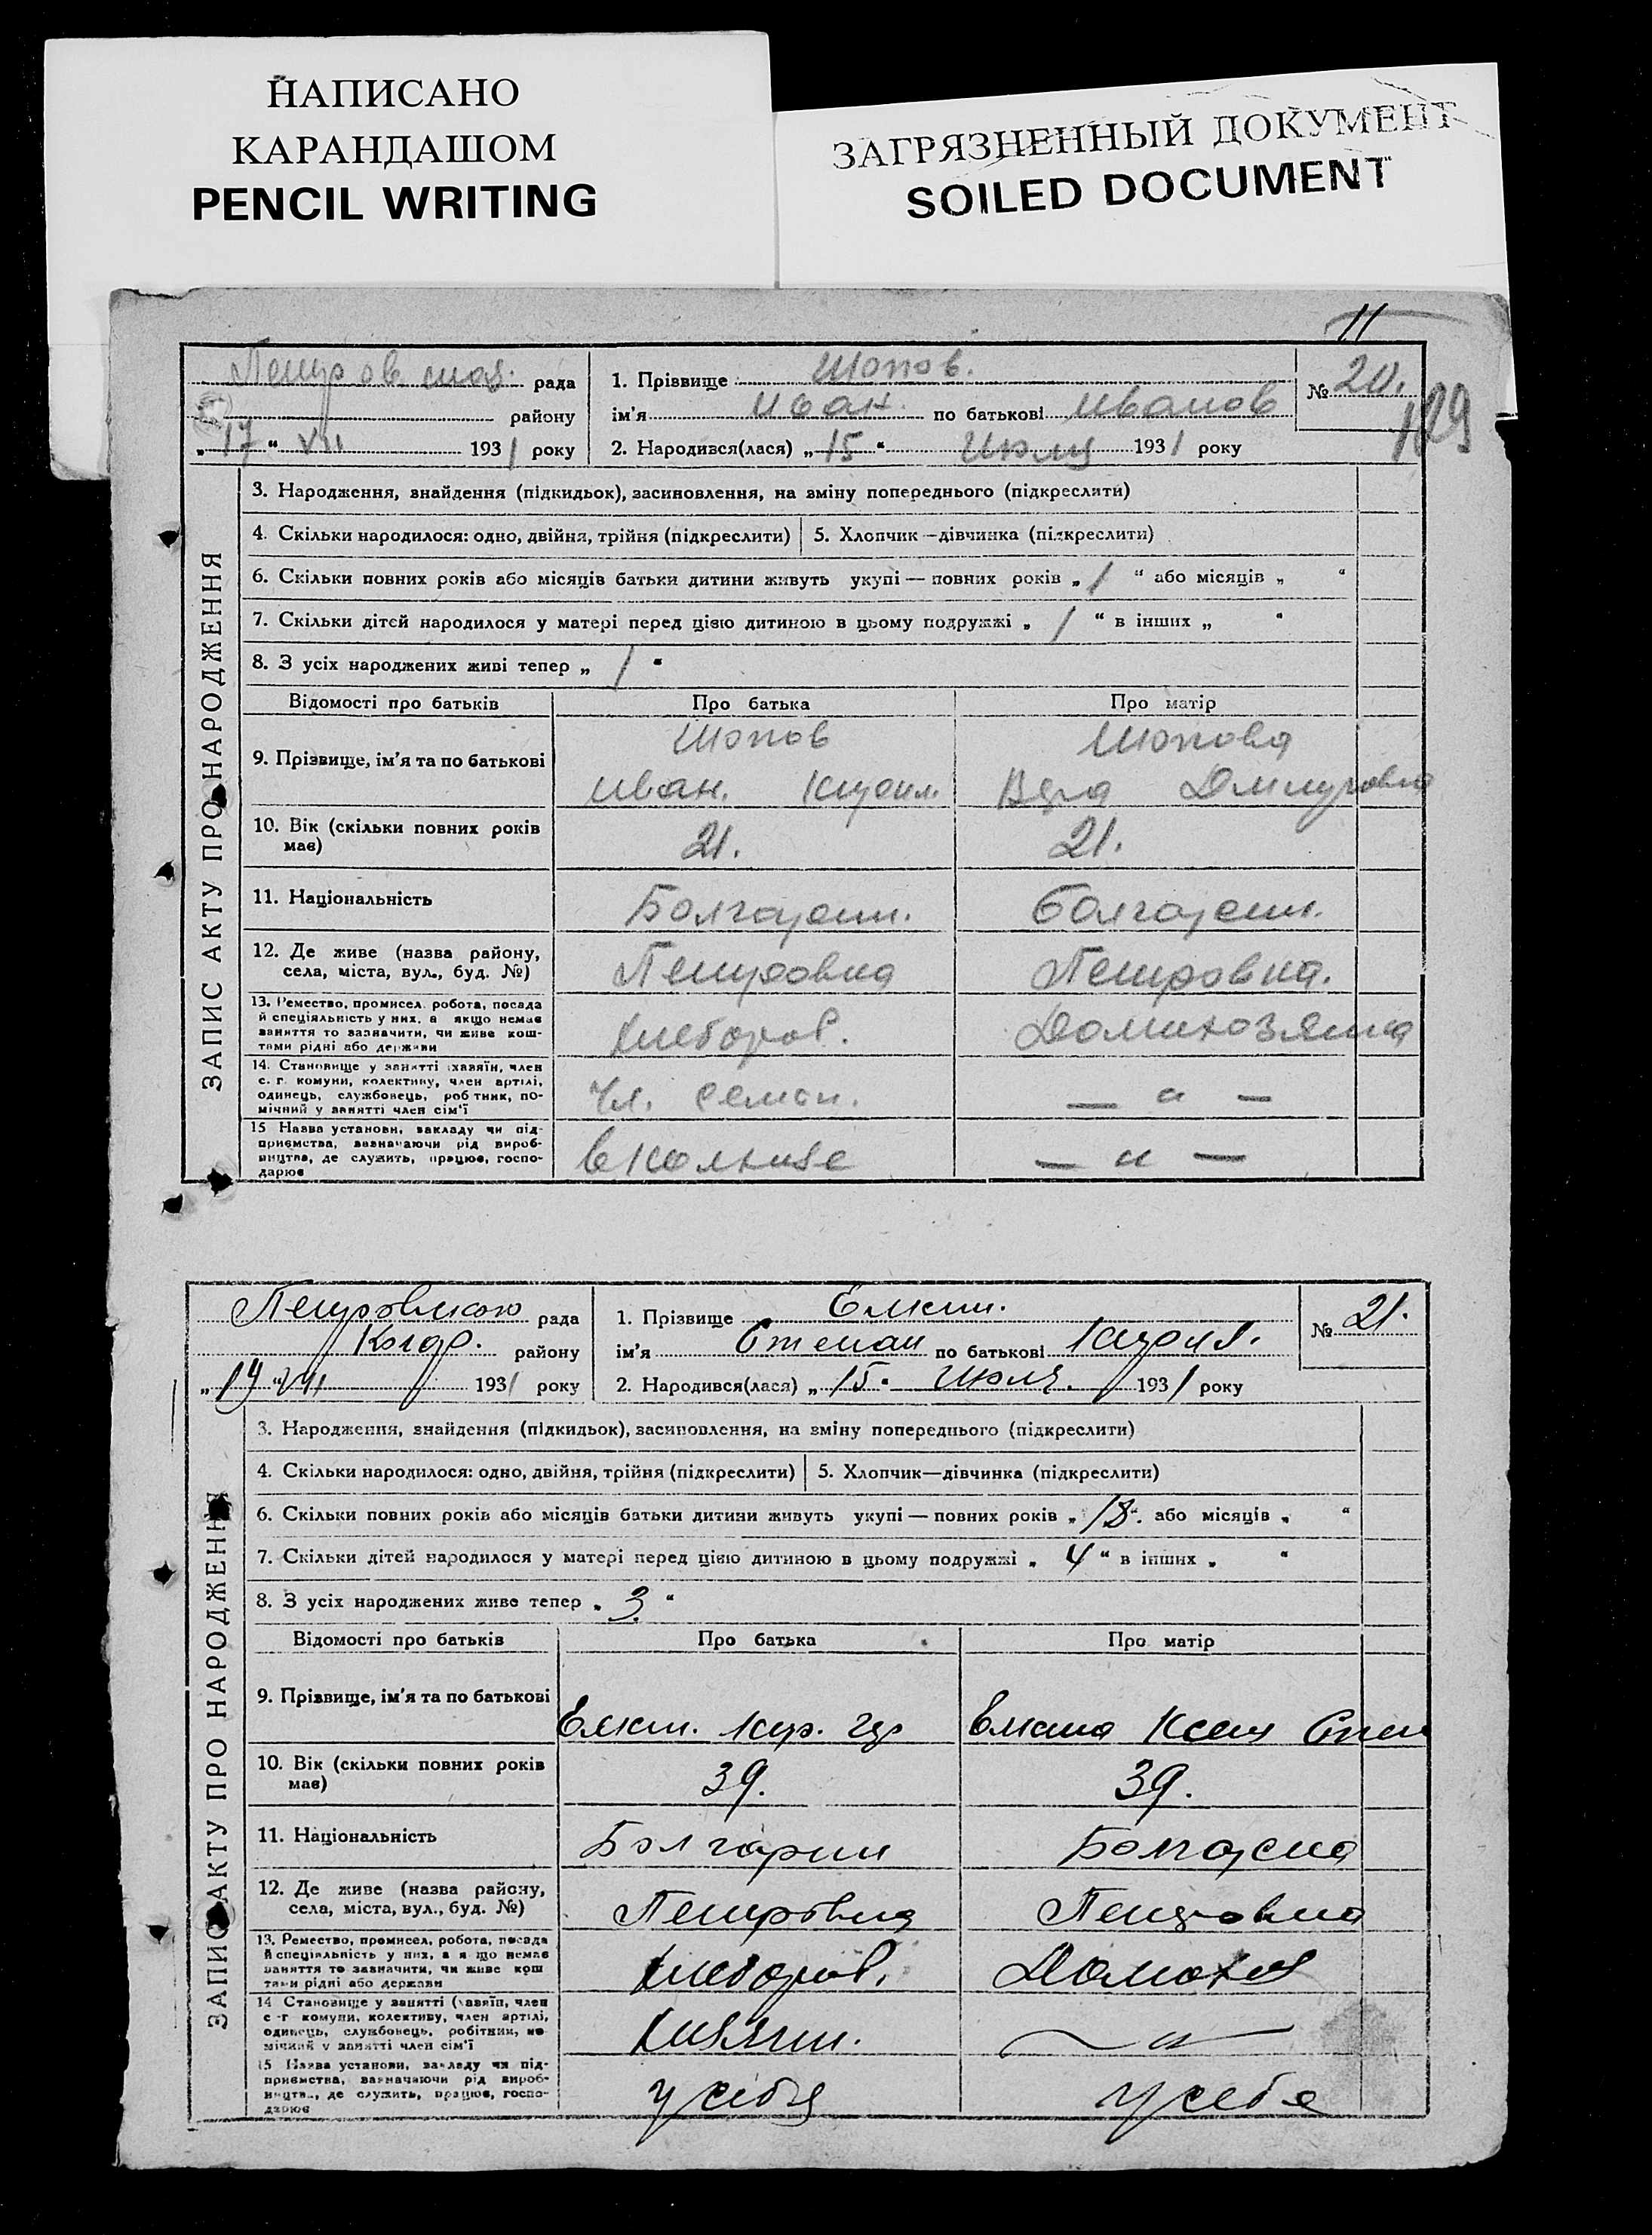 НАПИСАНО
КАРАНДАШОМ
PENCIL WRITING
ЗАГРЯЗНЕННЫЙ ДОКУМЕНТ
SOILED DOCUMENT
11
129
рада
району
„17“ VII 1931 року
1. Прізвище Шопов.
ім'я Иван по батькові Иванов
2. Народився(лася) „15“ Июля 1931 року
№ 20.
ЗАПИС АКТУ ПРО НАРОДЖЕННЯ
3. Народження, знайдення (підкидьок), засиновлення, на зміну попереднього (підкреслити)
4. Скільки народилося: одно, двійня, трійня (підкреслити) 5. Хлопчик—дівчинка (підкреслити)
6. Скільки повних років або місяців батьки дитини живуть укупі — повних років „1“ або місяців „ “
7. Скільки дітей народилося у матері перед цією дитиною в цьому подружжі „1“ в інших „ “
8. З усіх народжених живі тепер „1“
Відомості про батьків Про батька Про матір
9. Прізвище, ім'я та по батькові
Шопов
Иван. Кирил.
Шопова
Вера Дмитровна
10. Вік (скільки повних років має)
21. 21.
11. Національність
Болгарин. Болгарин.
12. Де живе (назва району, села, міста, вул., буд. №)
Петровка Петровка.
13. Ремество, промисел, робота, посада
й спеціяльність у них, а якщо немає
заняття то зазначити, чи живе кош-
тами рідні або держави
Хлебороб. Домихозяйка
14. Становище у занятті (хазяїн, член
с. г. комуни, колективу, член артілі,
одинець, службовець, робітник, по-
мічний у занятті член сім'ї
Чл. семьи. — „ —
15 Назва установи, закладу чи під-
приємства, зазначаючи рід вироб-
ництва, де служить, працює, госпо-
дарює
в колхозе — „ —
рада
району
„19“ VII 1931 року
1. Прізвище
ім'я Степан по батькові Кирил.
2. Народився(лася) „15. Июля. 1931 року
№ 21.
ЗАПИС АКТУ ПРО НАРОДЖЕННЯ
3. Народження, знайдення (підкидьок), засиновлення, на зміну попереднього (підкреслити)
4. Скільки народилося: одно, двійня, трійня (підкреслити) 5. Хлопчик—дівчинка (підкреслити)
6. Скільки повних років або місяців батьки дитини живуть укупі — повних років „18“ або місяців „ “
7. Скільки дітей народилося у матері перед цією дитиною в цьому подружжі „4“ в інших „ “
8. З усіх народжених живе тепер „3“
Відомості про батьків Про батька Про матір
9. Прізвище, ім'я та по батькові
10. Вік (скільки повних років має)
39. 39.
11. Національність
Болгарин Болгарка
12. Де живе (назва району, села, міста, вул., буд. №)
Петровка Петровка
13. Ремество, промисел, робота, посада
й спеціяльність у них, а якщо немає
заняття то зазначити, чи живе кош
тами рідні або держави
Хлебороб. Домохоз
14 Становище у занятті (хазяїн, член
с -г комуни, колективу, член артілі,
одинець, службовець, робітник, по
мічний у занятті член сім'ї
Хазяин. — „ —
15 Назва установи, закладу чи під-
приємства, зазначаючи рід вироб-
ництва, де служить, працює, госпо-
дарює
у себя у себе